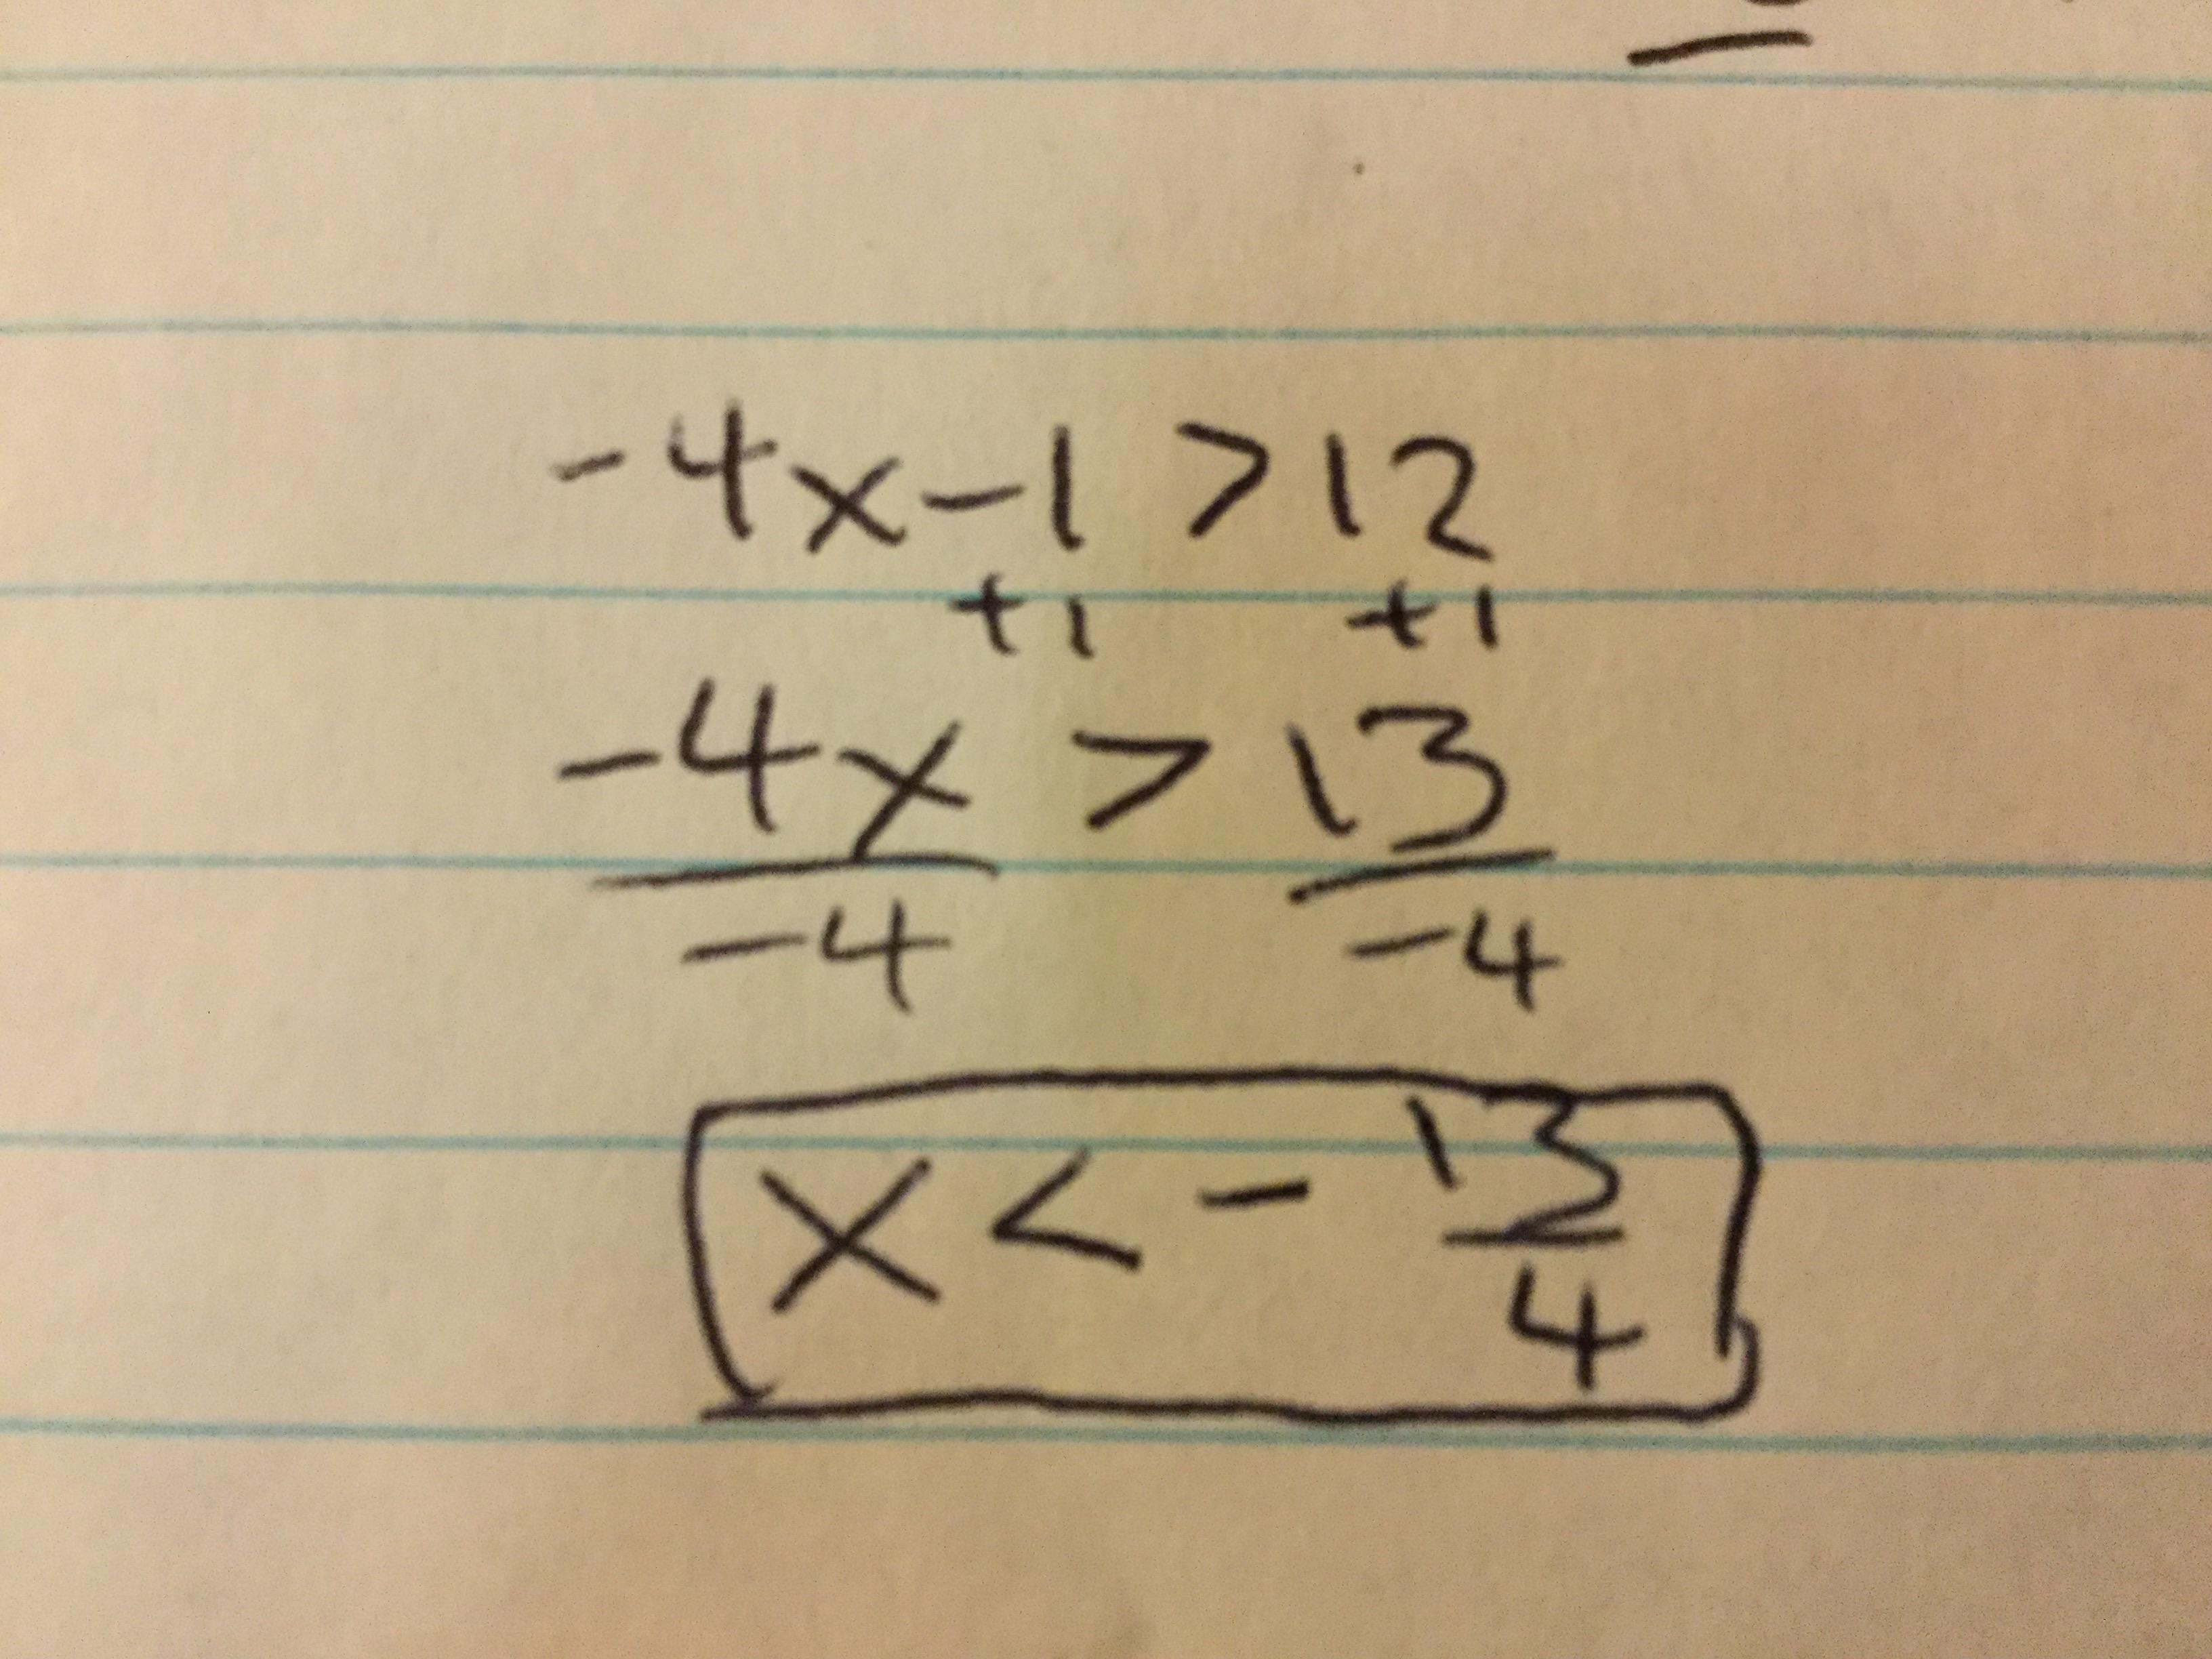 -4x-1 > 12
+1 +1
-4x > 13
-4 -4
x < - 13/4